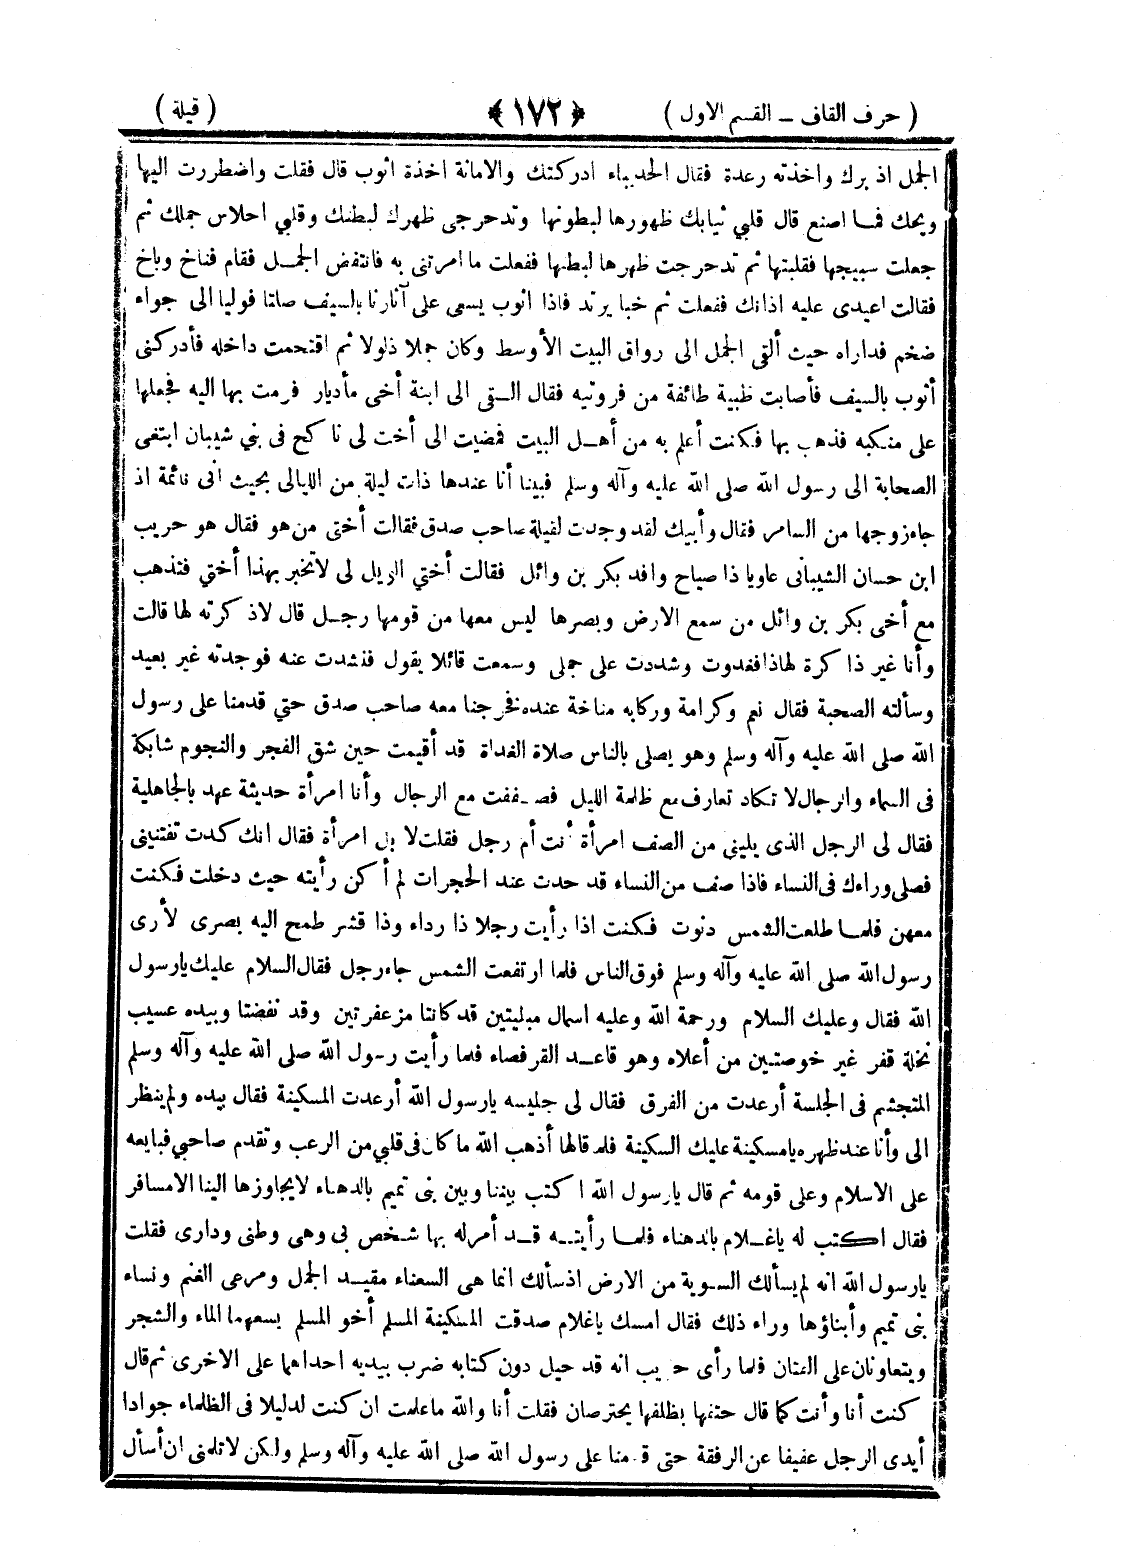 ( حرف القاف – القسم الاول ) ﴿ ١٧٢ ﴾ ( قيلة )
الجمل اذ برك واخذته رعدة فقال الحديباء ادركتك والامانة اخذة اثوب قال فقلت واضطررت اليها
ويحك فما اصنع قال قلبي ثيابك ظهورها لبطونها وتدحرجى ظهرك لبطنك وقلبي احلاس جملك ثم
جعلت سبيجها فقلبتها ثم تدحرجت ظهرها لبطنها ففعلت ما امرتنى به فانتفض الجمل فقام فناخ وباخ
فقالت اعيدى عليه اذانك ففعلت ثم خبا يرتد فاذا اثوب يسعى على آثارنا بالسيف صلتا فوليا الى جواء
ضخم فداراه حيث ألقى الجمل الى رواق البيت الأوسط وكان جملا ذلولا ثم اقتحمت داخله فأدركنى
أثوب بالسيف فأصابت ظبية طائفة من فروتيه فقال القى الى ابنة أخى مأديار فرمت بها اليه فجعلها
على منكبه فذهب بها فكنت أعلم به من أهل البيت فمضيت الى أخت لى ناكح فى بني شيبان ابتغى
الصحابة الى رسول الله صلى الله عليه وآله وسلم فبينا أنا عندها ذات ليلة من الليالى بحيث انى نائمة اذ
جاء زوجها من السامر فقال وأبيك لقد وجدت لقيلة صاحب صدق فقالت أختى من هو فقال هو حريب
ابن حسان الشيبانى عاويا ذا صياح وافد بكر بن وائل فقالت أختي الزيل لى لا تخبر بهذا أختي فتذهب
مع أخى بكر بن وائل من سمع الارض وبصرها ليس معها من قومها رجل قال لاذكرته لها قالت
وأنا غير ذاكرة لهاذا فغدوت وشددت على جملى وسمعت قائلا يقول فنشدت عنه فوجدته غير بعيد
وسألته الصحبة فقال نعم وكرامة وركابه مناخة عنده فخرجنا معه صاحب صدق حتي قدمنا على رسول
الله صلى الله عليه وآله وسلم وهو يصلى بالناس صلاة الغداة قد أقيمت حين شق الفجر والنجوم شابكة
فى السماء والرجال لا تكاد تعارف مع ظلمة الليل فصففت مع الرجال وأنا امرأة حديثة عهد بالجاهلية
فقال لى الرجل الذى يلينى من الصف امرأة أنت أم رجل فقلت لا بل امرأة فقال انك كدت تفتنينى
فصلى وراءك فى النساء فاذا صف من النساء قد حدث عند الحجرات لم أكن رأيته حيث دخلت فكنت
معهن فلما طلعت الشمس دنوت فكنت اذا رأيت رجلا ذا رداء وذا قشر طمح اليه بصرى لأرى
رسول الله صلى الله عليه وآله وسلم فوق الناس فلما ارتفعت الشمس جاء رجل فقال السلام عليك يارسول
الله فقال وعليك السلام ورحمة الله وعليه اسمال مبليتين قد كانتا مزعفرتين وقد نفضتا وبيده عسيب
نخلة قفر غير خوصتين من أعلاه وهو قاعد القرفصاء فلما رأيت رسول الله صلى الله عليه وآله وسلم
المتجشم فى الجلسة أرعدت من الفرق فقال لى جليسه يارسول الله أرعدت المسكينة فقال بيده ولم ينظر
الى وأنا عند ظهره يا مسكينة عليك السكينة فلما قالها أذهب الله ما كان فى قلبي من الرعب وتقدم صاحبي فبايعه
على الاسلام وعلى قومه ثم قال يارسول الله اكتب بيننا وبين بنى تميم بالدهناء لا يجاوزها الينا الا مسافر
فقال اكتب له ياغلام بالدهناء فلما رأيته قد أمر له بها شخص بى وهى وطنى ودارى فقلت
يارسول الله انه لم يسألك السوية من الارض اذ سألك انما هى السعناء مقيد الجمل ومرعى الغنم ونساء
بنى تميم وأبناؤها وراء ذلك فقال امسك ياغلام صدقت المسكينة المسلم أخو المسلم يسعهما الماء والشجر
ويتعاونان على الفتان فلما رأى حريب انه قد حيل دون كتابه ضرب بيديه احداهما على الاخرى ثم قال
كنت أنا وأنت كما قال حتفها بظلفها يحترصان فقلت أنا والله ماعلمت ان كنت لدليلا فى الظلماء جوادا
أيدى الرجل عفيفا عن الرفقة حتى قدمنا على رسول الله صلى الله عليه وآله وسلم ولكن لا تلمنى ان أسأل